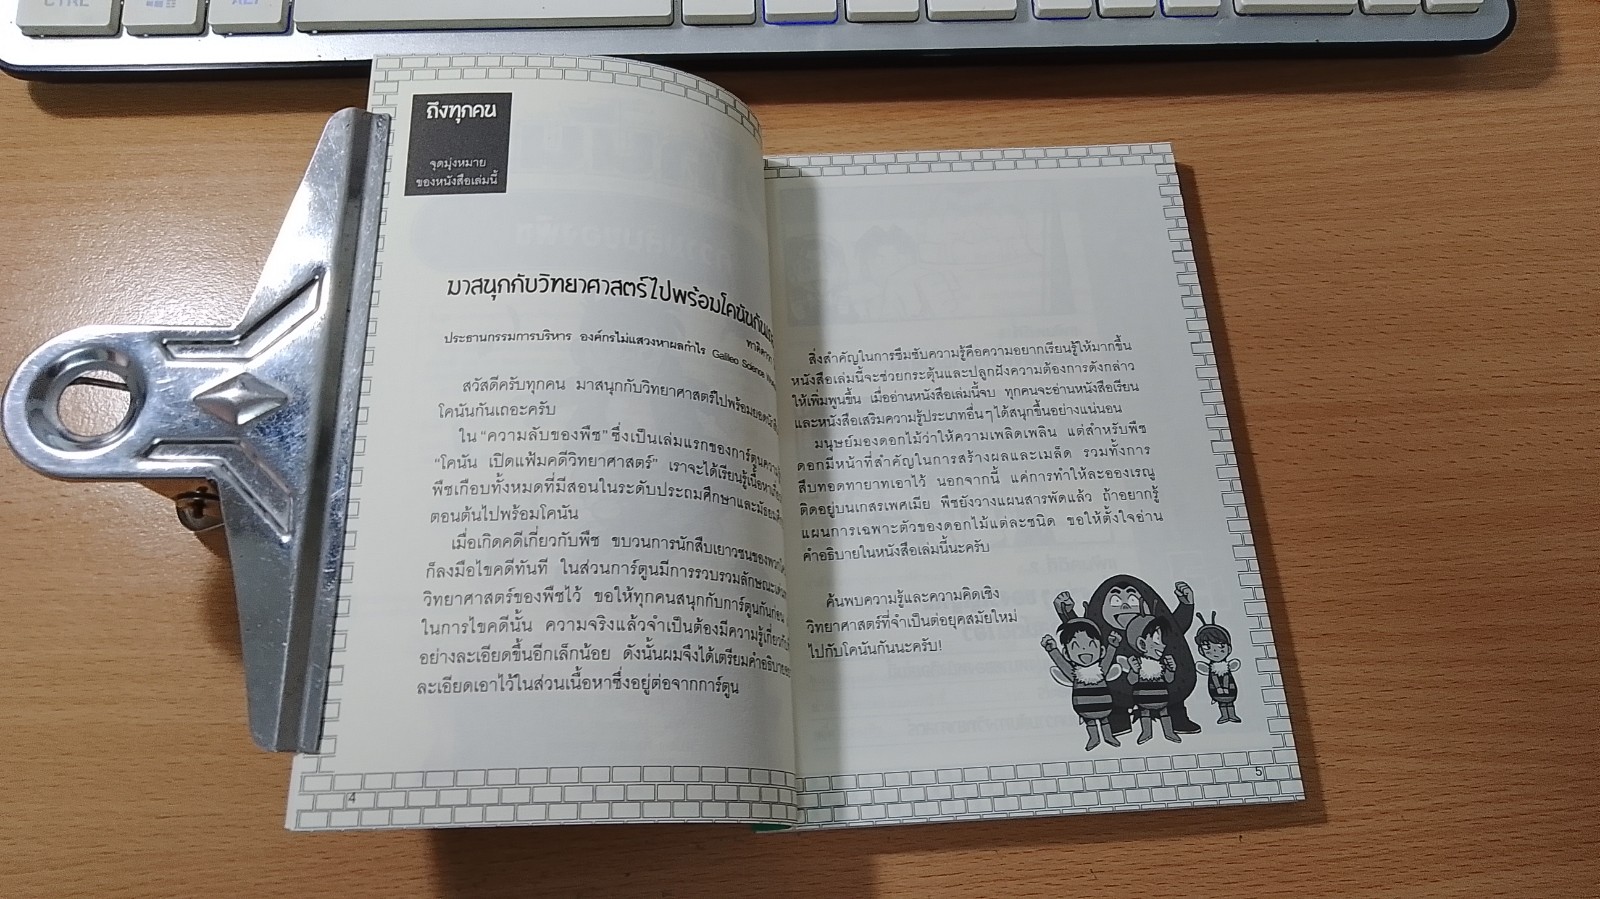 CTRL
ALT
ถึงทุกคน
จุดมุ่งหมาย
ของหนังสือเล่มนี้
มาสนุกกับวิทยาศาสตร์ไปพร้อมโคนันกัน
ประธานกรรมการบริหาร องค์กรไม่แสวงหาผลกำไร Galileo Science
สวัสดีครับทุกคน มาสนุกกับวิทยาศาสตร์ไปพร้อมยอดนักสืบ
โคนันกันเถอะครับ
ใน “ความลับของพืช” ซึ่งเป็นเล่มแรกของการ์ตูนความรู้
“โคนัน เปิดแฟ้มคดีวิทยาศาสตร์” เราจะได้เรียนรู้เนื้อหา
พืชเกือบทั้งหมดที่มีสอนในระดับประถมศึกษาและมัธยม
ตอนต้นไปพร้อมโคนัน
เมื่อเกิดคดีเกี่ยวกับพืช ขบวนการนักสืบเยาวชนของพวก
ก็ลงมือไขคดีทันที ในส่วนการ์ตูนมีการรวบรวมลักษณะ
วิทยาศาสตร์ของพืชไว้ ขอให้ทุกคนสนุกกับการ์ตูนกันก่อน
ในการไขคดีนั้น ความจริงแล้วจำเป็นต้องมีความรู้เกี่ยวกับ
อย่างละเอียดขึ้นอีกเล็กน้อย ดังนั้นผมจึงได้เตรียมคำอธิบาย
ละเอียดเอาไว้ในส่วนเนื้อหาซึ่งอยู่ต่อจากการ์ตูน
4
สิ่งสำคัญในการซึมซับความรู้คือความอยากเรียนรู้ให้มากขึ้น
หนังสือเล่มนี้จะช่วยกระตุ้นและปลูกฝังความต้องการดังกล่าว
ให้เพิ่มพูนขึ้น เมื่ออ่านหนังสือเล่มนี้จบ ทุกคนจะอ่านหนังสือเรียน
และหนังสือเสริมความรู้ประเภทอื่นๆ ได้สนุกขึ้นอย่างแน่นอน
มนุษย์มองดอกไม้ว่าให้ความเพลิดเพลิน แต่สำหรับพืช
ดอกมีหน้าที่สำคัญในการสร้างผลและเมล็ด รวมทั้งการ
สืบทอดทายาทเอาไว้ นอกจากนี้ แค่การทำให้ละอองเรณู
ติดอยู่บนเกสรเพศเมีย พืชยังวางแผนสารพัดแล้ว ถ้าอยากรู้
แผนการเฉพาะตัวของดอกไม้แต่ละชนิด ขอให้ตั้งใจอ่าน
คำอธิบายในหนังสือเล่มนี้นะครับ
ค้นพบความรู้และความคิดเชิง
วิทยาศาสตร์ที่จำเป็นต่อยุคสมัยใหม่
ไปกับโคนันกันนะครับ!
5